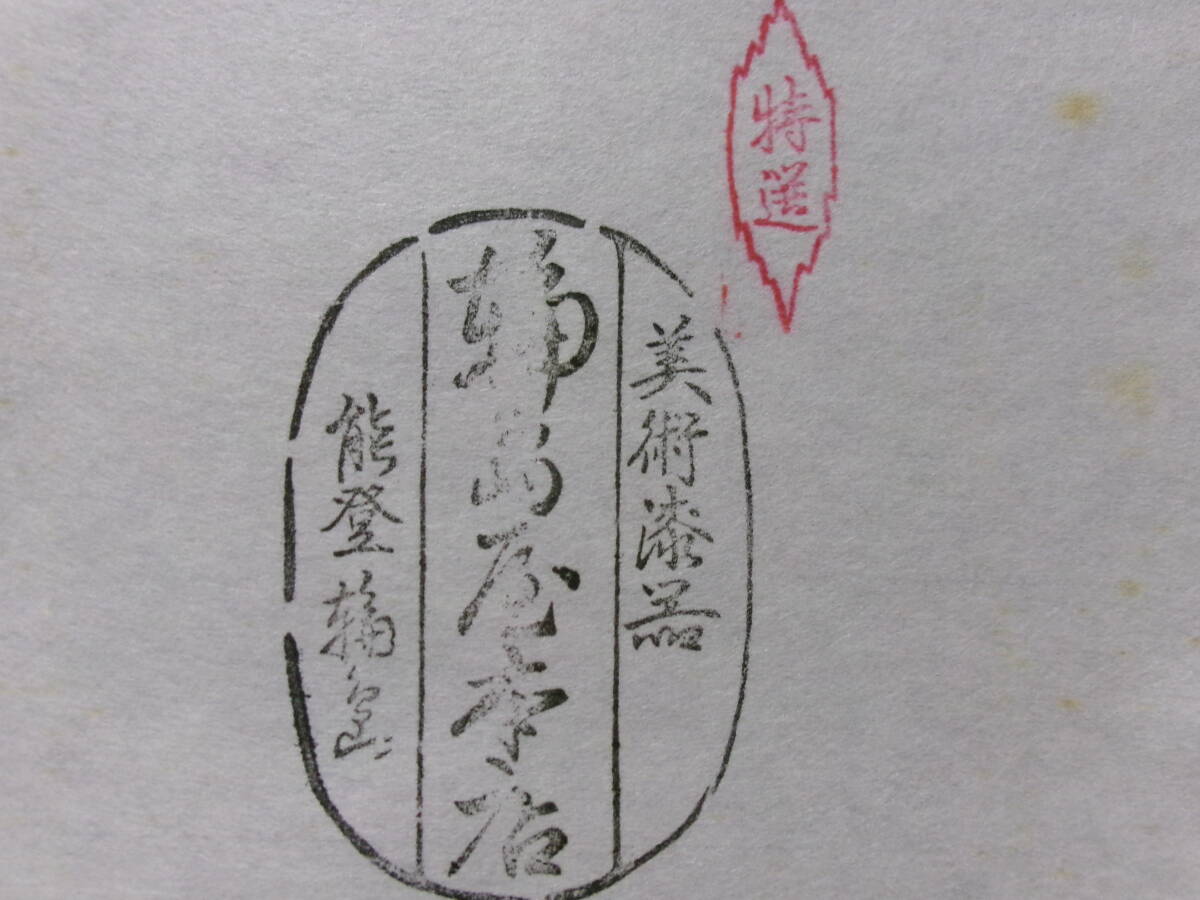 特選
美術漆器
輪島屋本店
能登輪島